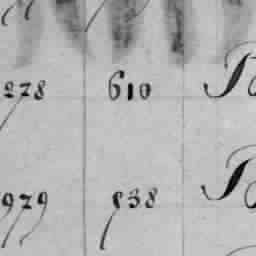 278 610 B
979 838 B